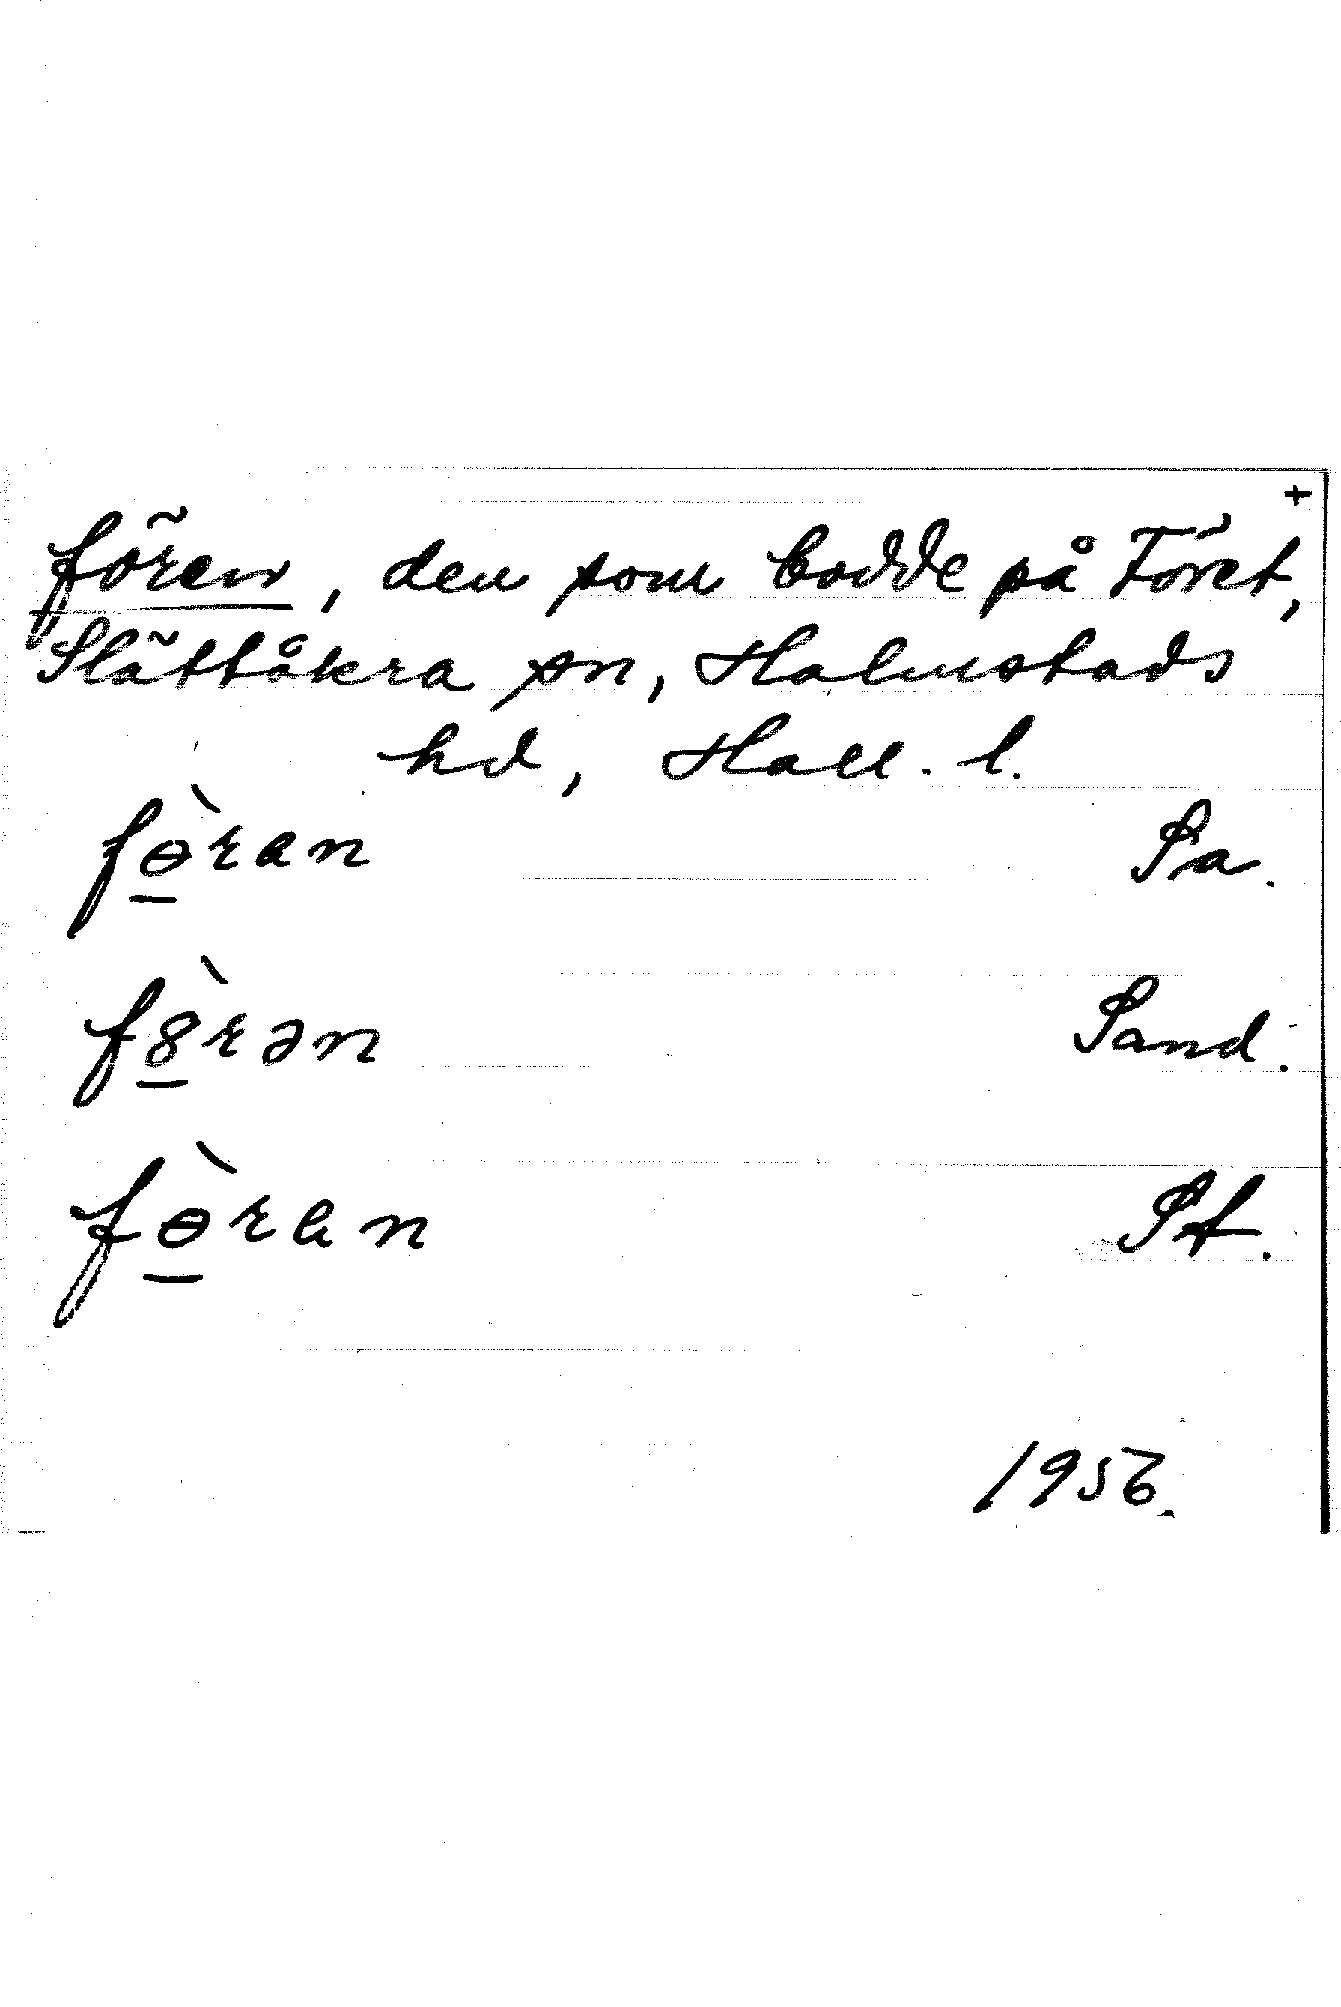 +
fören, den som bodde på Föret,
Slättåkra sn, Halmstads
hd, Hall. l.
fɵ̠̀ran Sa.
f8̠̀rən Sand.
fɵ̠̀ran St.
1956.